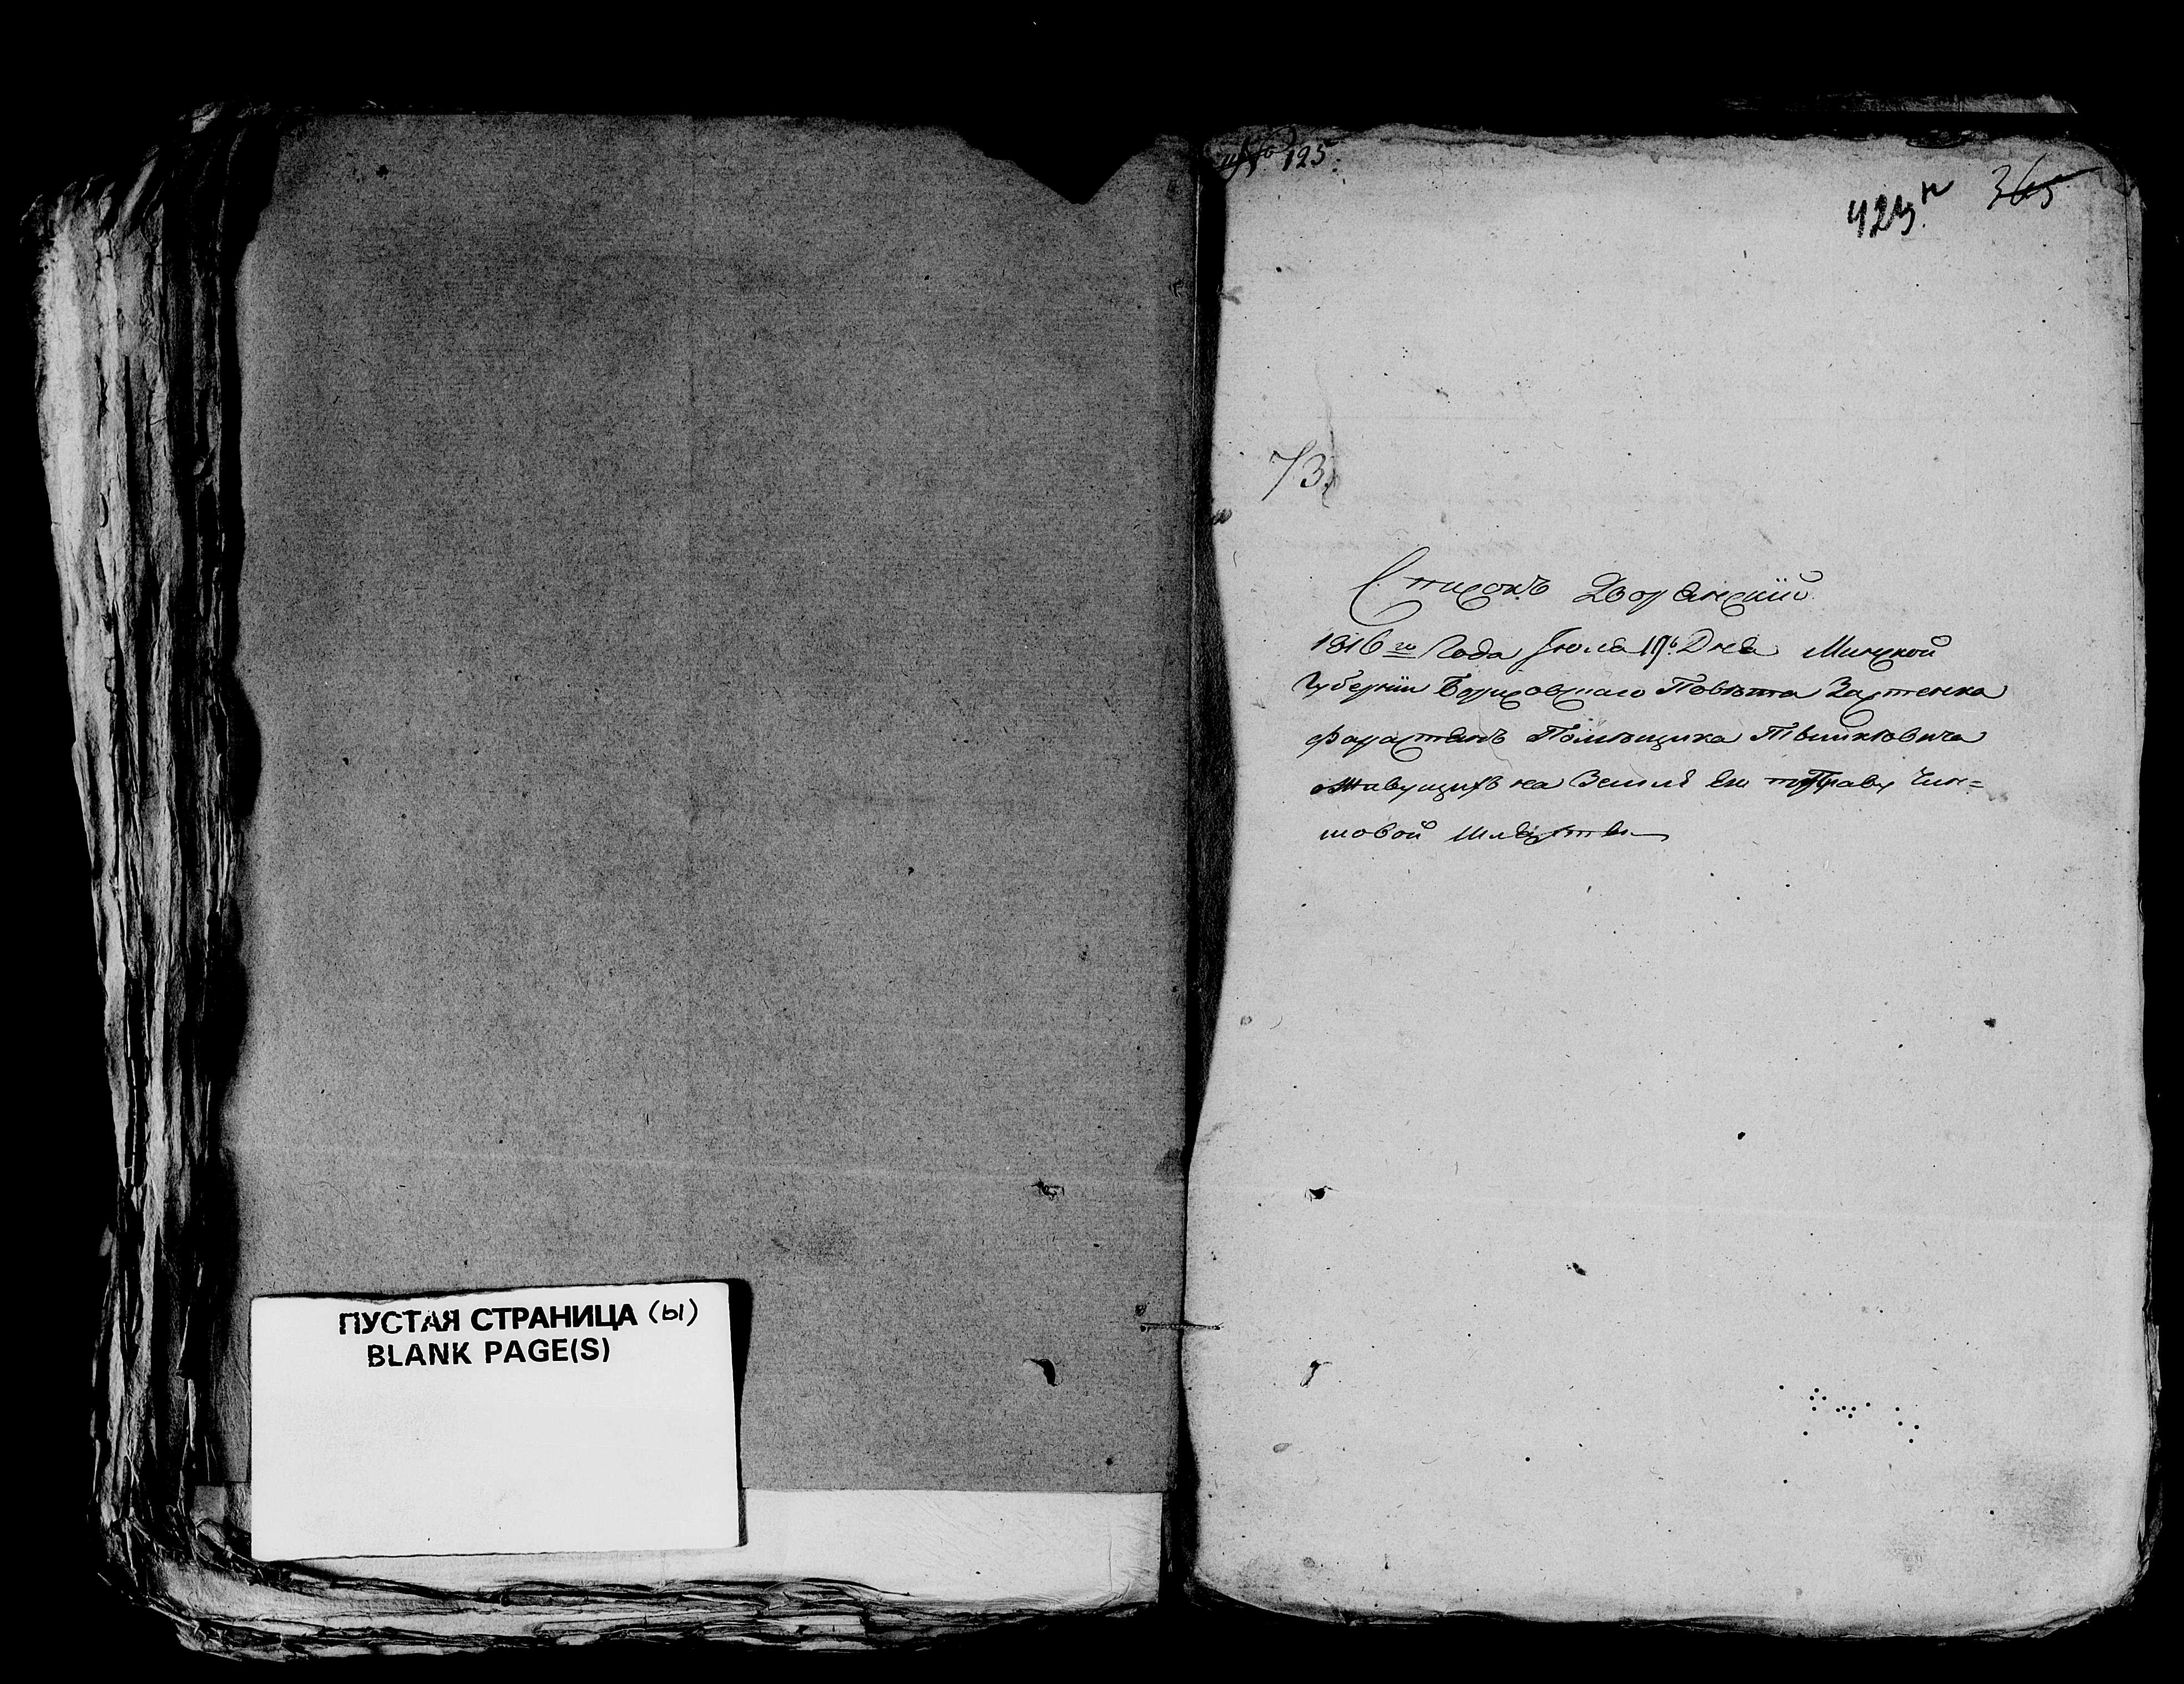 ПУСТАЯ СТРАНИЦА (ы)
BLANK PAGE(S)
125.
423 365
73.
Списокъ Дворянскiй
1816го Года Iюля Дня Минской
Губернiи Борисовскаго Повѣта Застенка
Помѣщика
Живущихъ на Земле Чин=
шовой Шляхты